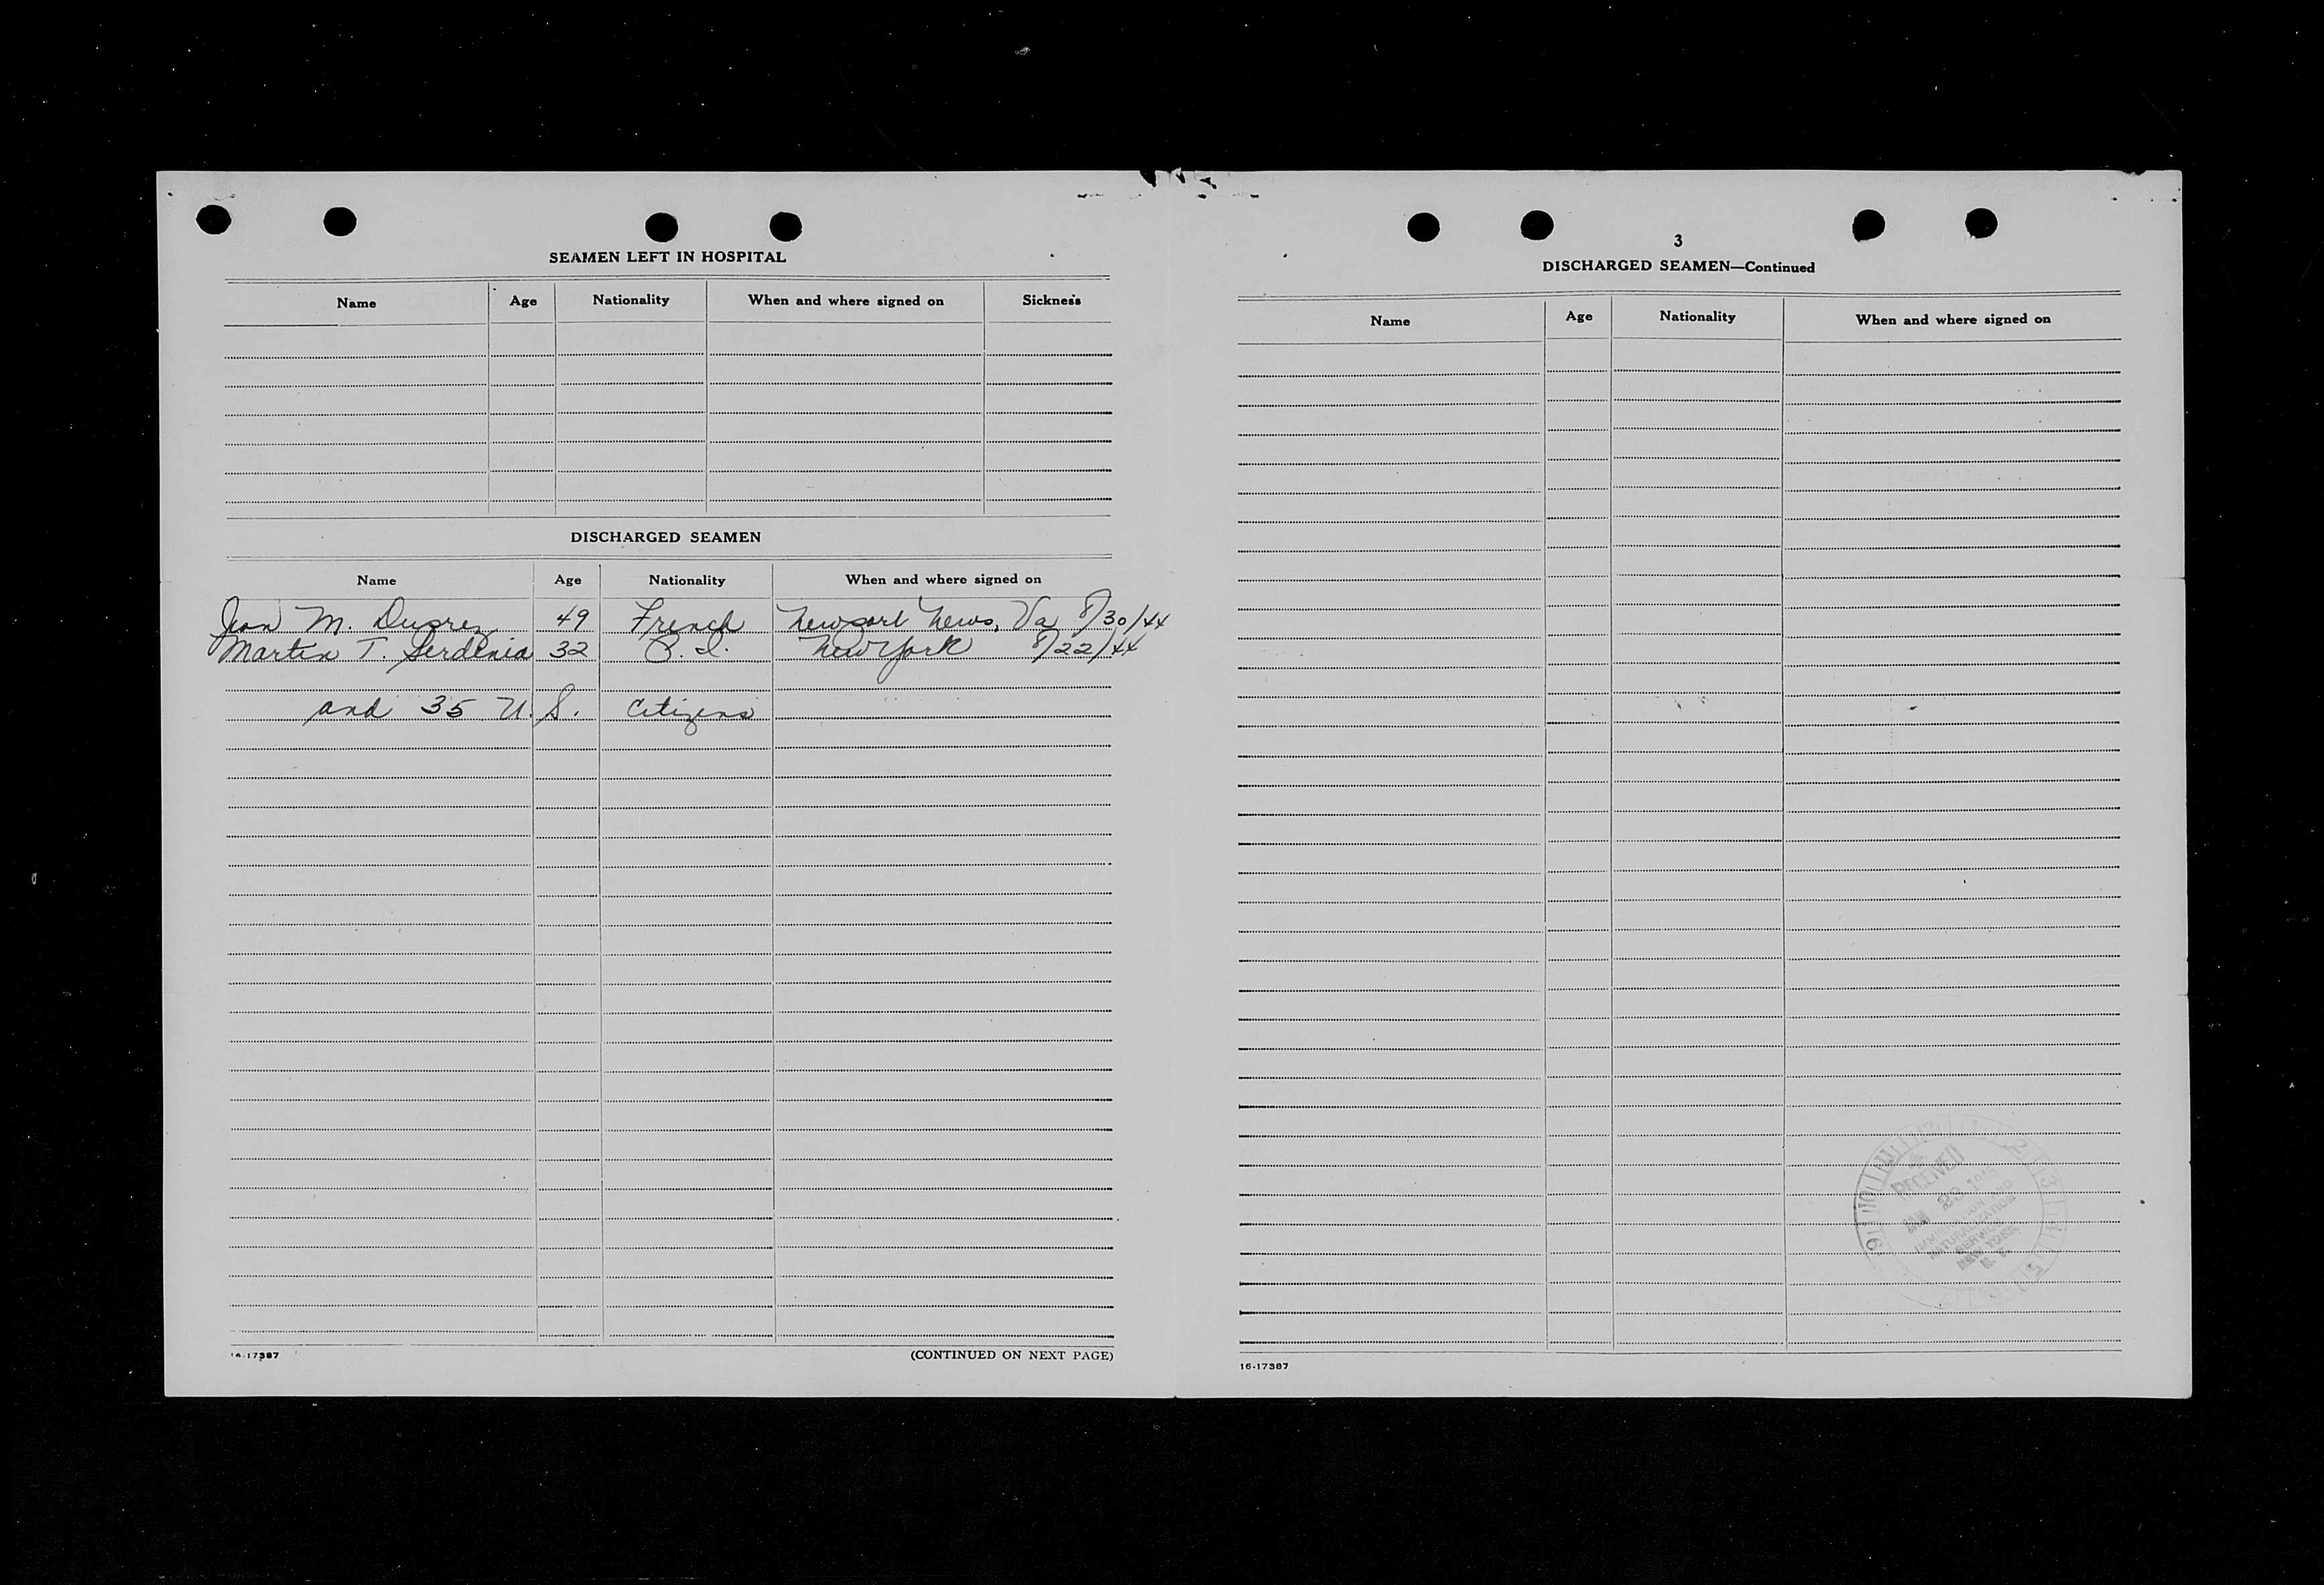 SEAMEN LEFT IN HOSPITAL
Name Age Nationality When and where signed on Sickness
DISCHARGED SEAMEN
Name Age Nationality When and where signed on
Jean M. Duprez 49 French Newport News, Va 8/30/44
Martin T. Serdenia 32 P.I. New York 8/22/44
and 35 U.S. Citizens
16-17387
(CONTINUED ON NEXT PAGE)
3
DISCHARGED SEAMEN—Continued
Name Age Nationality When and where signed on
RECEIVED
JAN 23
IMMIGRATION AND
NATURALIZATION
SERVICE
NEW YORK
N.Y.
16-17387